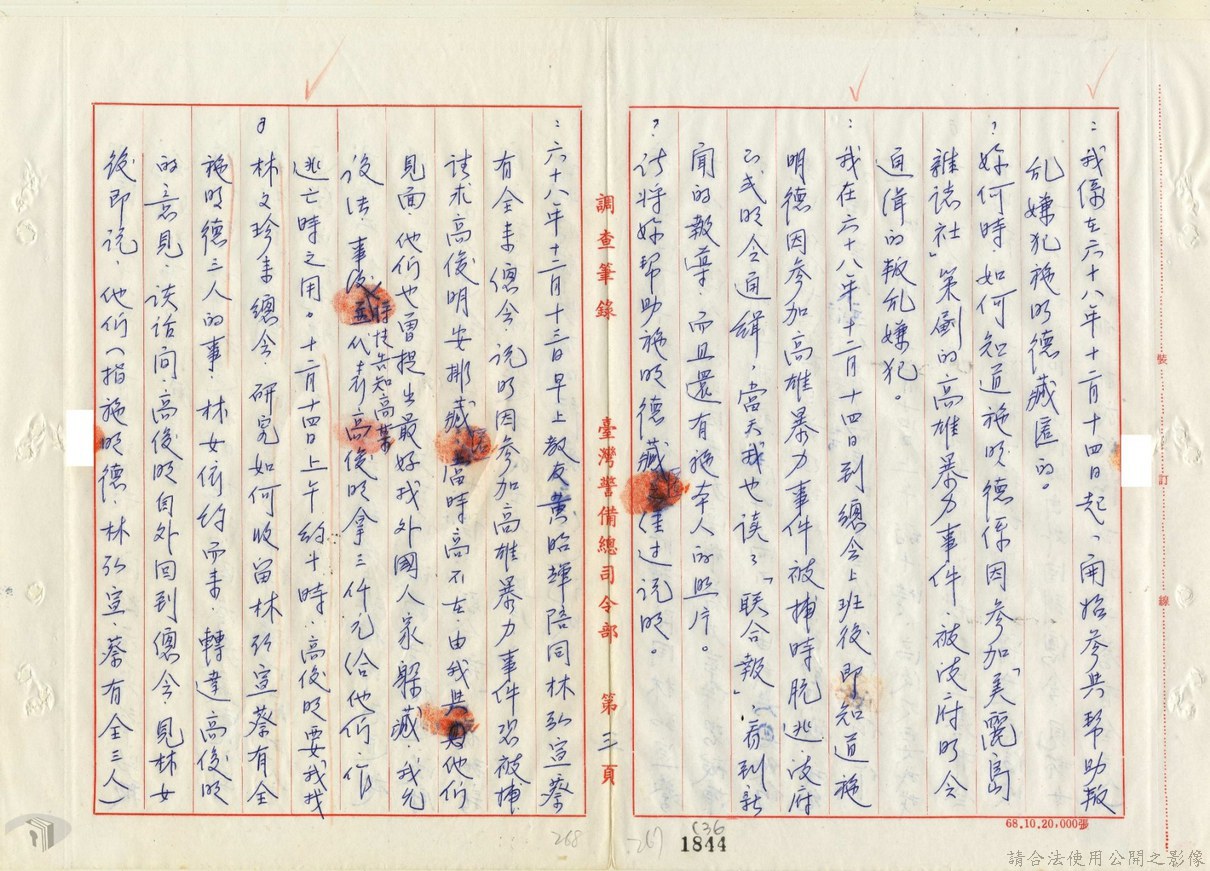 ：我係在六十八年十二月十四日起，開始參與幫助叛
亂嫌犯施明德藏匿的。
？妳何時、如何知道施明德係因參加「美麗島
雜誌社」策劃的高雄暴力事件，被政府明令
通緝的叛亂嫌犯。
：我在六十八年十二月十四日到總會上班後即知道施
明德因參加高雄暴力事件被捕時脫逃，政府
已明令通緝，當天我也讀了「联合報」，看到新
聞的報導，而且還有施本人的照片。
？請將妳幫助施明德藏經過說明。
調查筆錄 臺灣警備總司令部 第三頁
：六十八年十二月十三日早上教友黃昭輝陪同林弘宣蔡
有全来總會，說明因參加高雄暴力事件恐被捕，
請求高俊明安排藏，當時高不在，由我與他們
見面，他們也曾提出最好找外國人家躲藏，我允
設法，事後時技告知高某代表高俊明拿三仟元給他們，作
逃亡時之用。十二月十四日上午約十時，高俊明要我找
林文珍来總會，研究如何收留林弘宣蔡有全
施明德三人的事，林女依約而来，轉達高俊明
的意見，談話間，高俊明自外回到總會，見林女
後即說，他們（指施明德、林弘宣、蔡有全三人）
68.10.20,000張
268
267
636
1844
裝
訂
線
請合法使用公開之影像